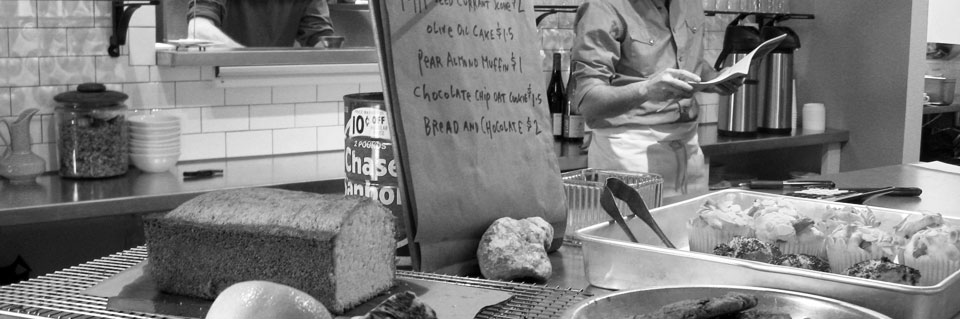 SEED CURRANT SCONE $2
OLIVE OIL CAKE $1.5
PEAR ALMOND MUFFIN $1
CHOCOLATE CHIP OAT COOKIE $1.5
BREAD AND CHOCOLATE $2
10¢ OFF
2 POUNDS
Chase
anbor